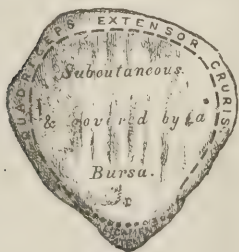 QUADRICEPS EXTENSOR CRURIS
Subcutaneous.
& covered by a
Bursa.